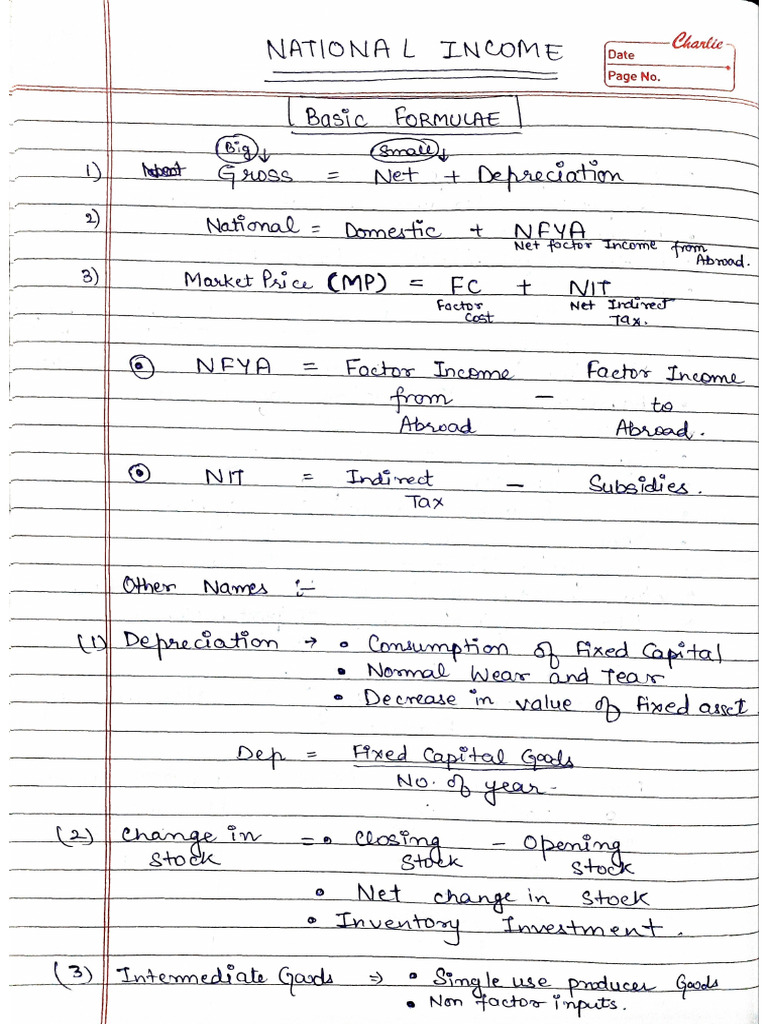 NATIONAL INCOME
Charlie
Date
Page No.
Basic FORMULAE
Big Small
1) Gross = Net + Depreciation
2) National = Domestic + NFYA
Net factor Income from
Abroad.
3) Market Price (MP) = FC + NIT
Factor Net Indirect
Cost Tax.
NFYA = Factor Income Factor Income
from – to
Abroad Abroad.
NIT = Indirect – Subsidies.
Tax
Other Names :–
(1) Depreciation → • Consumption of Fixed Capital
• Normal Wear and Tear
• Decrease in value of fixed asset
Dep = Fixed Capital Goods
No. of year.
(2) Change in = • Closing – Opening
Stock Stock Stock
• Net change in Stock
• Inventory Investment.
(3) Intermediate Goods ⇒ • Single use producer Goods
• Non factor inputs.